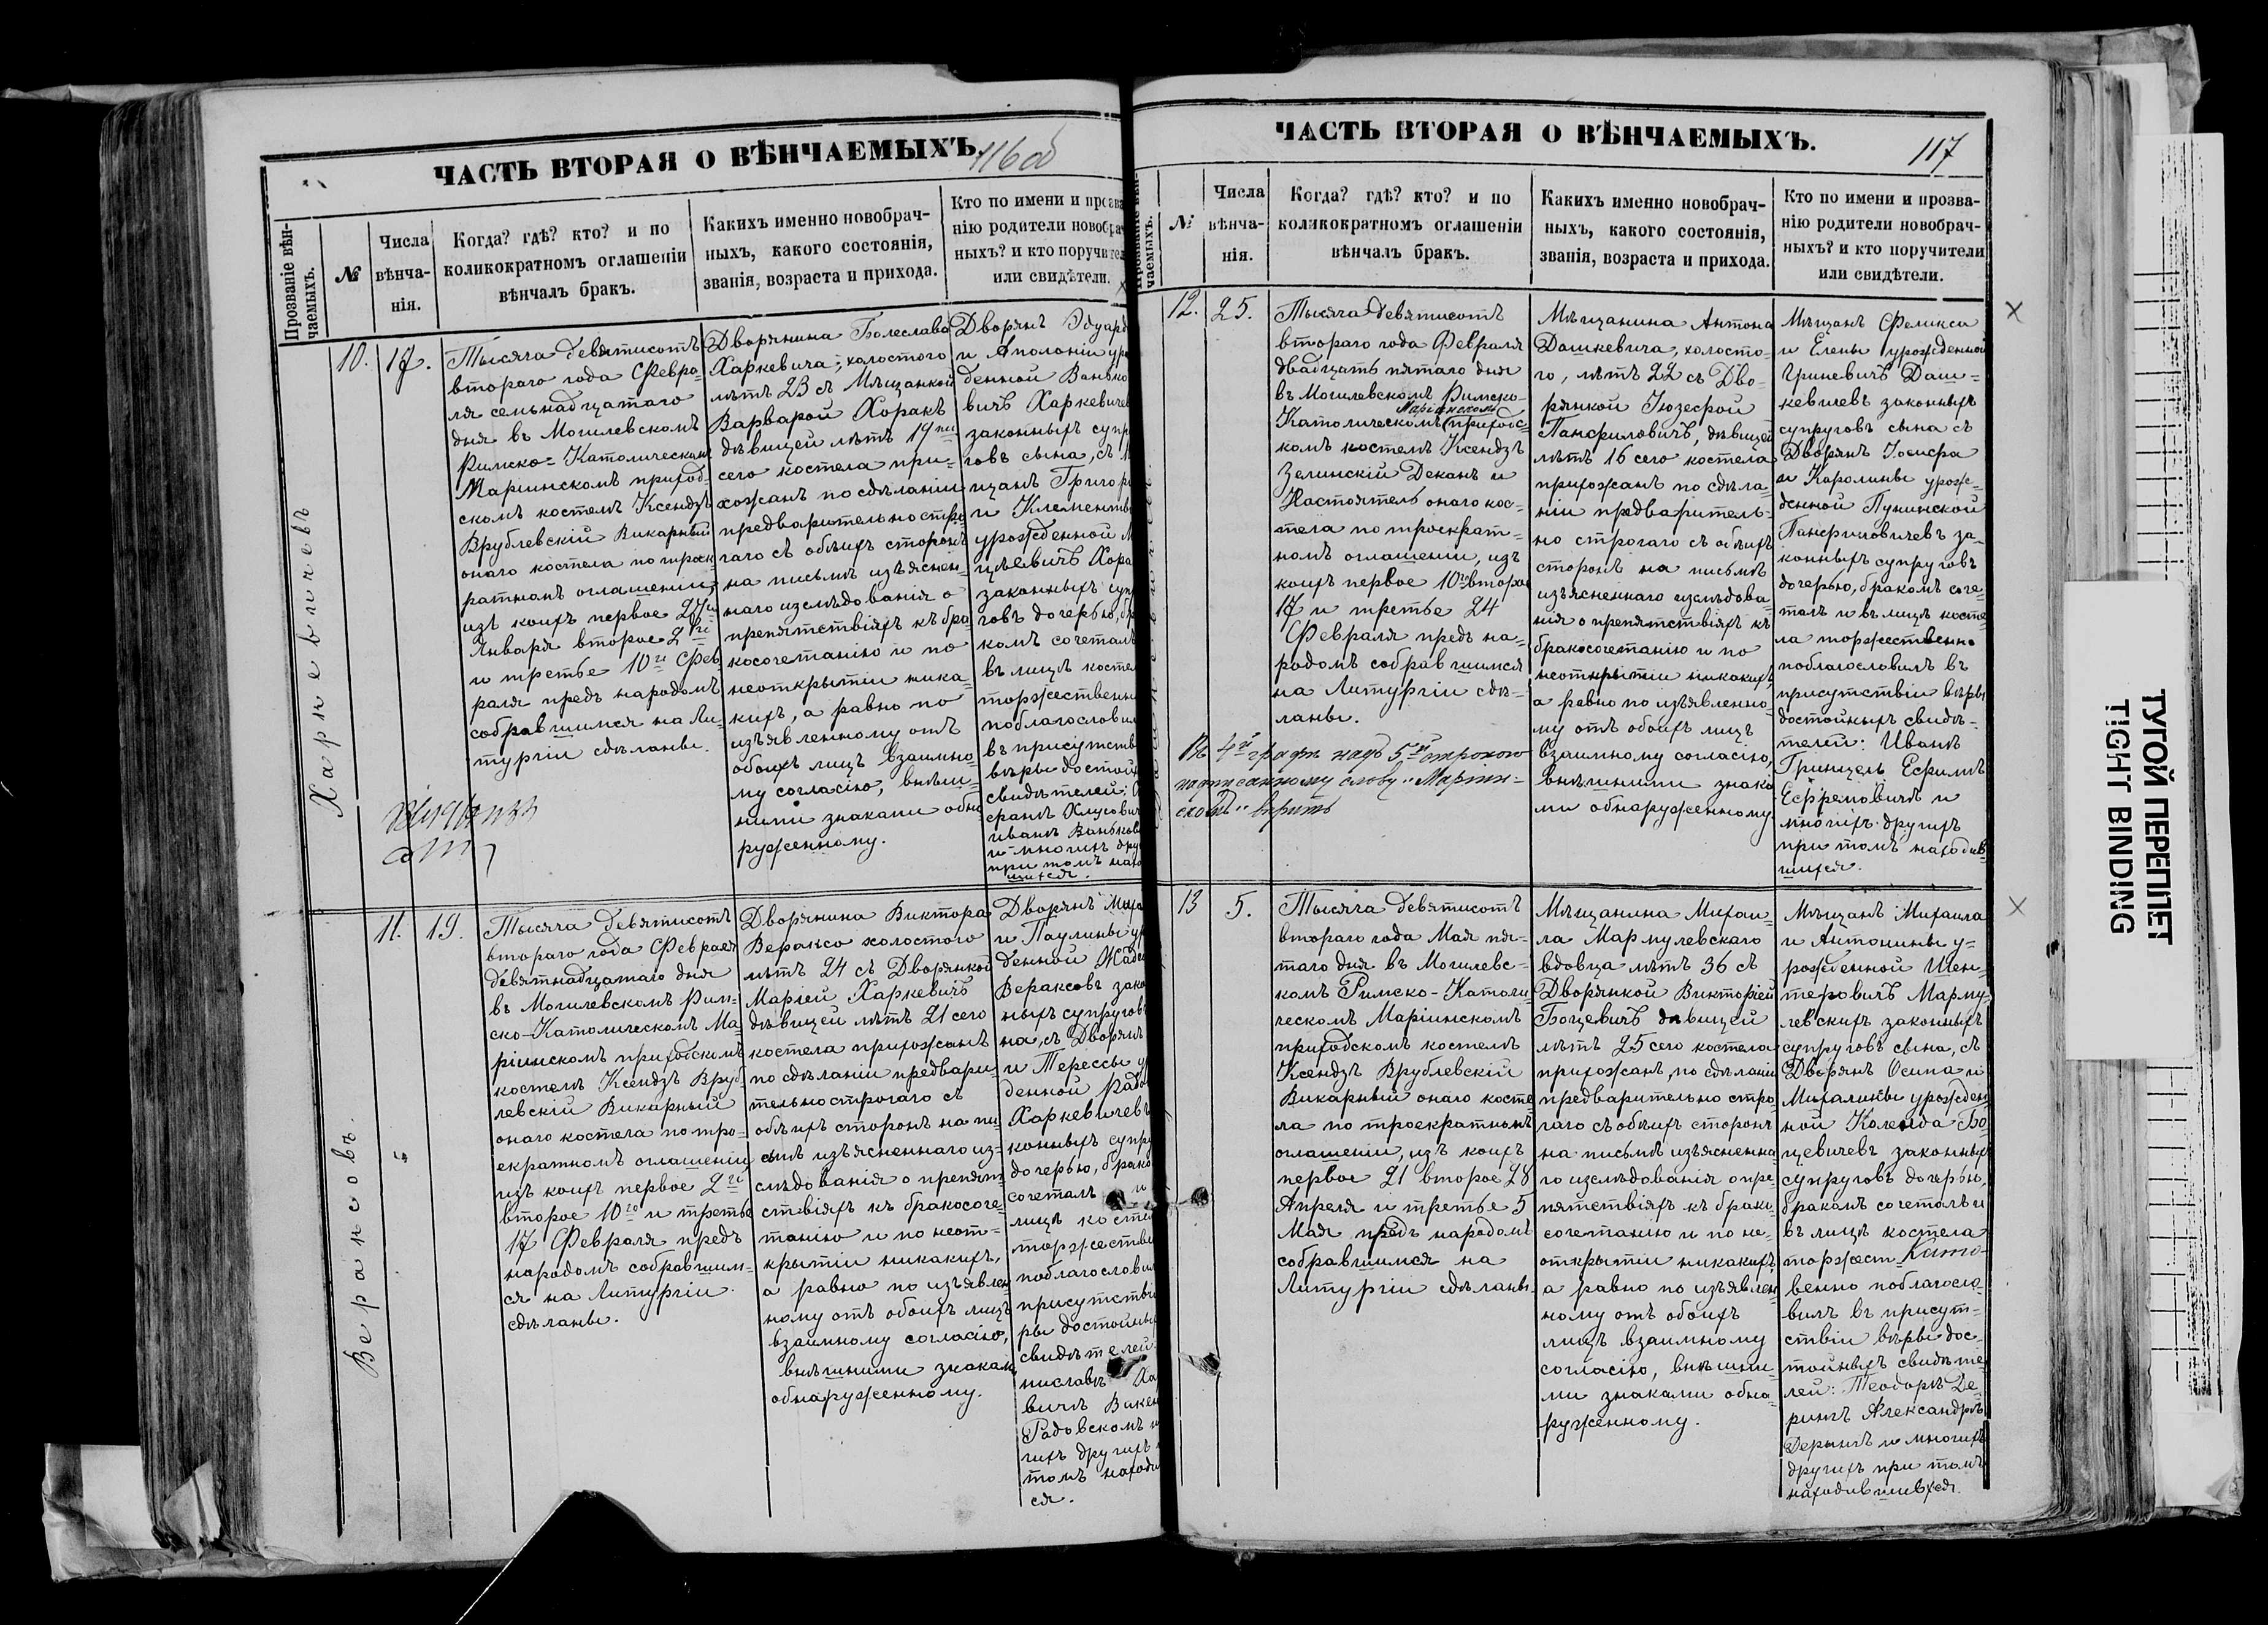 ЧАСТЬ ВТОРАЯ О ВѢНЧАЕМЫХЪ.
116 об
Прозваніе вѣн-
чаемыхъ.
№
Числа
вѣнча-
нія.
Когда? гдѣ? кто? и по
коликократномъ оглашеніи
вѣнчалъ бракъ.
Какихъ именно новобрач-
ныхъ, какого состоянія,
званія, возраста и прихода.
Кто по имени и прозва
нію родители новобрач
ныхъ? и кто поручител
или свидѣтели.
Харкевичевъ
10.
17.
Тысяча девятисотъ
втораго года Февра-
ля семьнадцатаго
дня въ Могилевскомъ
Римско-Католическомъ
Маріинскомъ приход-
скомъ костелѣ Ксендзъ
Врублевскій Викарный
онаго костела по троек-
ратномъ оглашеніи,
изъ коихъ первое 27го
Января второе 2го
и третье 10го Фев
раля предъ народомъ
собравшимся на Ли-
тургіи сдѣланы.
Дворянина Болеслава
Харкевича, холостого
лѣтъ 23 съ Мѣщанкой
Варварой Хоракъ
дѣвицей лѣтъ 19ти
сего костела при-
хожанъ по сдѣланіи
предварительно стро
гаго съ обѣихъ сторонъ
на письмѣ изъяснен-
наго изслѣдованія о
препятствіяхъ къ бра-
косочетанію и по
неоткрытіи ника-
кихъ, а равно по
изъявленному отъ
обоихъ лицъ взаимно-
му согласію, внѣш-
ними знаками обна
руженному.
Дворянъ Эдуард
и Аполоніи уро
денной Ванько
вичъ Харкевичев
законныхъ супр
говъ сына, съ М
щанъ Григор
и Клементи
урожденной М
цѣлевичъ Хора
законныхъ суп
говъ дочерью, бр
комъ сочеталъ
въ лицѣ косте
торжественн
поблагослови
въ присутств
вѣры достой
свидѣтелей:
Иванъ Ваньков
и многихъ дру
при томъ нахо
шихся.
Вераксовъ.
11.
19.
Тысяча девятисотъ
втораго года Февраля
девятнадцатаго дня
въ Могилевскомъ Рим-
ско-Католическомъ Ма-
ріинскомъ приходскомъ
костелѣ Ксендзъ Вруб-
левскій Викарный
онаго костела по тро-
екратномъ оглашеніи,
изъ коихъ первое 2го
второе 10го и третье
17 Февраля предъ
народомъ собравшим-
ся на Литургіи
сдѣланы.
Дворянина Виктора
Вераксо холостого
лѣтъ 24 съ Дворянкой
Маріей Харкевичъ
дѣвицей лѣтъ 21 сего
костела прихожанъ
по сдѣланіи предвари-
тельно строгаго съ
обѣихъ сторонъ на пи-
сьмѣ изъясненнаго из-
слѣдованія о препят-
ствіяхъ къ бракосоче-
танію и по неот-
крытіи никакихъ,
а равно по изъявлен
ному отъ обоихъ лицъ
взаимному согласію,
внѣшними знакам
обнаруженному.
Дворянъ
и Паулины ур
денной
Вераксовъ зако
ныхъ супругов
на, съ Дворянъ
и Терессы у
денной Радо
Харкевичевъ
конныхъ супру
дочерью, брако
сочеталъ и
лицѣ косте
торжестве
поблагослови
присутстві
ры достойны
свидѣтелей
ниславъ Ха
вичъ Викен
Радовскомъ и
гихъ другихъ
томъ находи
ся.
ЧАСТЬ ВТОРАЯ О ВѢНЧАЕМЫХЪ.
117
чаемыхъ.
№
Числа
вѣнча-
нія.
Когда? гдѣ? кто? и по
коликократномъ оглашеніи
вѣнчалъ бракъ.
Какихъ именно новобрач-
ныхъ, какого состоянія,
званія, возраста и прихода.
Кто по имени и прозва-
нію родители новобрач-
ныхъ? и кто поручители
или свидѣтели.
12.
25.
Тысяча девятисотъ
втораго года Февраля
двадцать пятаго дня
въ Могилевскомъ Римско-
Маріинскомъ
Католическомъ приходс-
комъ костелѣ Ксендзъ
Зелинскій Деканъ и
Настоятель онаго кос-
тела по троекрат-
номъ оглашеніи, изъ
коихъ первое 10го второе
17 и третье 24
Февраля предъ на-
родомъ собравшимся
на Литургіи сдѣ-
ланы.
Въ 4й графѣ надъ 5й строкою
надписанному слову "Маріин-
скомъ" вѣрить
Мѣщанина Антона
Дашкевича, холосто-
го, лѣтъ 22 съ Дво-
рянкой Іозефой
Панфиловичъ, дѣвицей
лѣтъ 16 сего костела
прихожанъ по сдѣла-
ніи предваритель-
но строгаго съ обѣихъ
сторонъ на письмѣ
изъясненнаго изслѣдова-
нія о препятствіяхъ къ
бракосочетанію и по
неоткрытіи никакихъ,
а равно по изъявленно-
му отъ обоихъ лицъ
взаимному согласію,
внѣшними знака-
ми обнаруженному.
Мѣщанъ Феликса
и Елены урожденной
Гриневичъ Даш-
кевичевъ законныхъ
супруговъ сына съ
Дворянъ Іосифа
и Каролины урож-
денной Пунинской
Панфиловичевъ за-
конныхъ супруговъ
дочерью, бракомъ соче-
талъ и въ лицѣ косте-
ла торжественно
поблагословилъ въ
присутствіи вѣры
достойныхъ свидѣ-
телей: Иванъ
Гринцель Ефимъ
Ефремовичъ и
многихъ другихъ
при томъ находив-
шихся.
13
5.
Тысяча девятисотъ
втораго года Мая пя-
таго дня въ Могилевс-
комъ Римско-Католи-
ческомъ Маріинскомъ
приходскомъ костелѣ
Ксендзъ Врублевскій
Викарный онаго косте
ла по троекратномъ
оглашеніи, изъ коихъ
первое 21 второе 28
Апреля и третье 5
Мая предъ народомъ
собравшимся на
Литургіи сдѣланы.
Мѣщанина Михаи-
ла Мармулевскаго
вдовца лѣтъ 36 съ
Дворянкой Викторіей
Боцевичъ дѣвицей
лѣтъ 25 сего костела
прихожанъ, по сдѣланіи
предварительно стро-
гаго съ обѣихъ сторонъ
на письмѣ изъясненна-
го изслѣдованія о пре-
пятствіяхъ къ брако-
сочетанію и по не-
открытіи никакихъ
а равно по изъявлен-
ному отъ обоихъ
лицъ взаимному
согласію, внѣшни-
ми знаками обна-
руженному.
Мѣщанъ Михаила
и Антонины у-
рожденной Шен-
теровичъ Марму-
левскихъ законныхъ
супруговъ сына, съ
Дворянъ Осипа и
Михалины урожден
ной Коленда Бо
цевичевъ законныхъ
супруговъ дочерью,
бракомъ сочеталъ и
въ лицѣ костела
торжест
венно поблагосло-
вилъ въ присут-
ствіи вѣры дос-
тойныхъ свидѣте
лей: Теодоръ Де-
рингъ Александръ
Дерингъ и многихъ
другихъ при томъ
находившихся.
ТУГОЙ ПЕРЕПЛЕТ
TIGHT BINDING